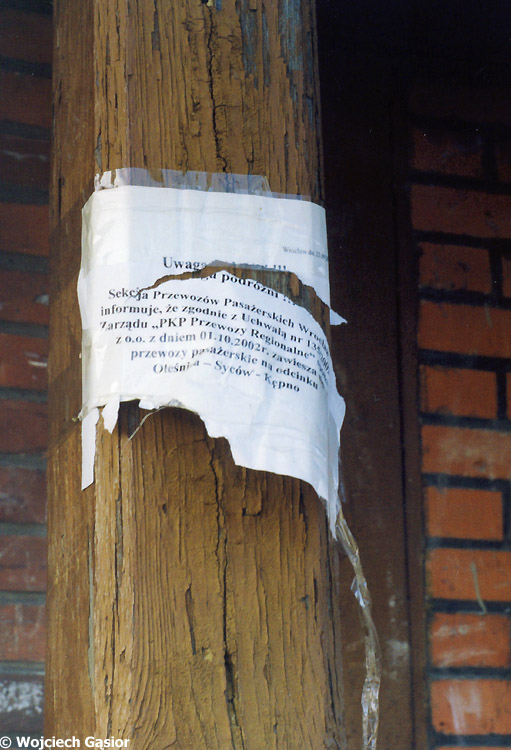 Wrocław dn.
Uwaga
podróżni !
Sekcja Przewozów Pasażerskich
informuje, że zgodnie z Uchwałą nr
Zarządu „PKP Przewozy Regionalne”
z o.o. z dniem 01.10.2002r. zawiesza
przewozy pasażerskie na odcinku
Oleśnica – Syców - Kępno
© Wojciech Gąsior